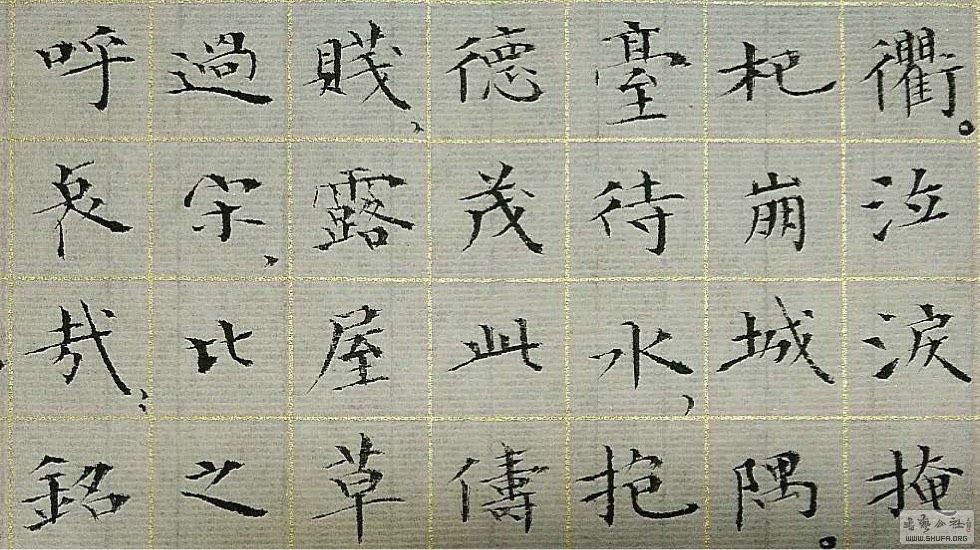 衢。泣淚掩
杞崩城隅。
臺待水，抱
德茂此儔
賤、露屋草
過宋、比之
呼哀哉；銘
书艺公社
WWW.SHUFA.ORG